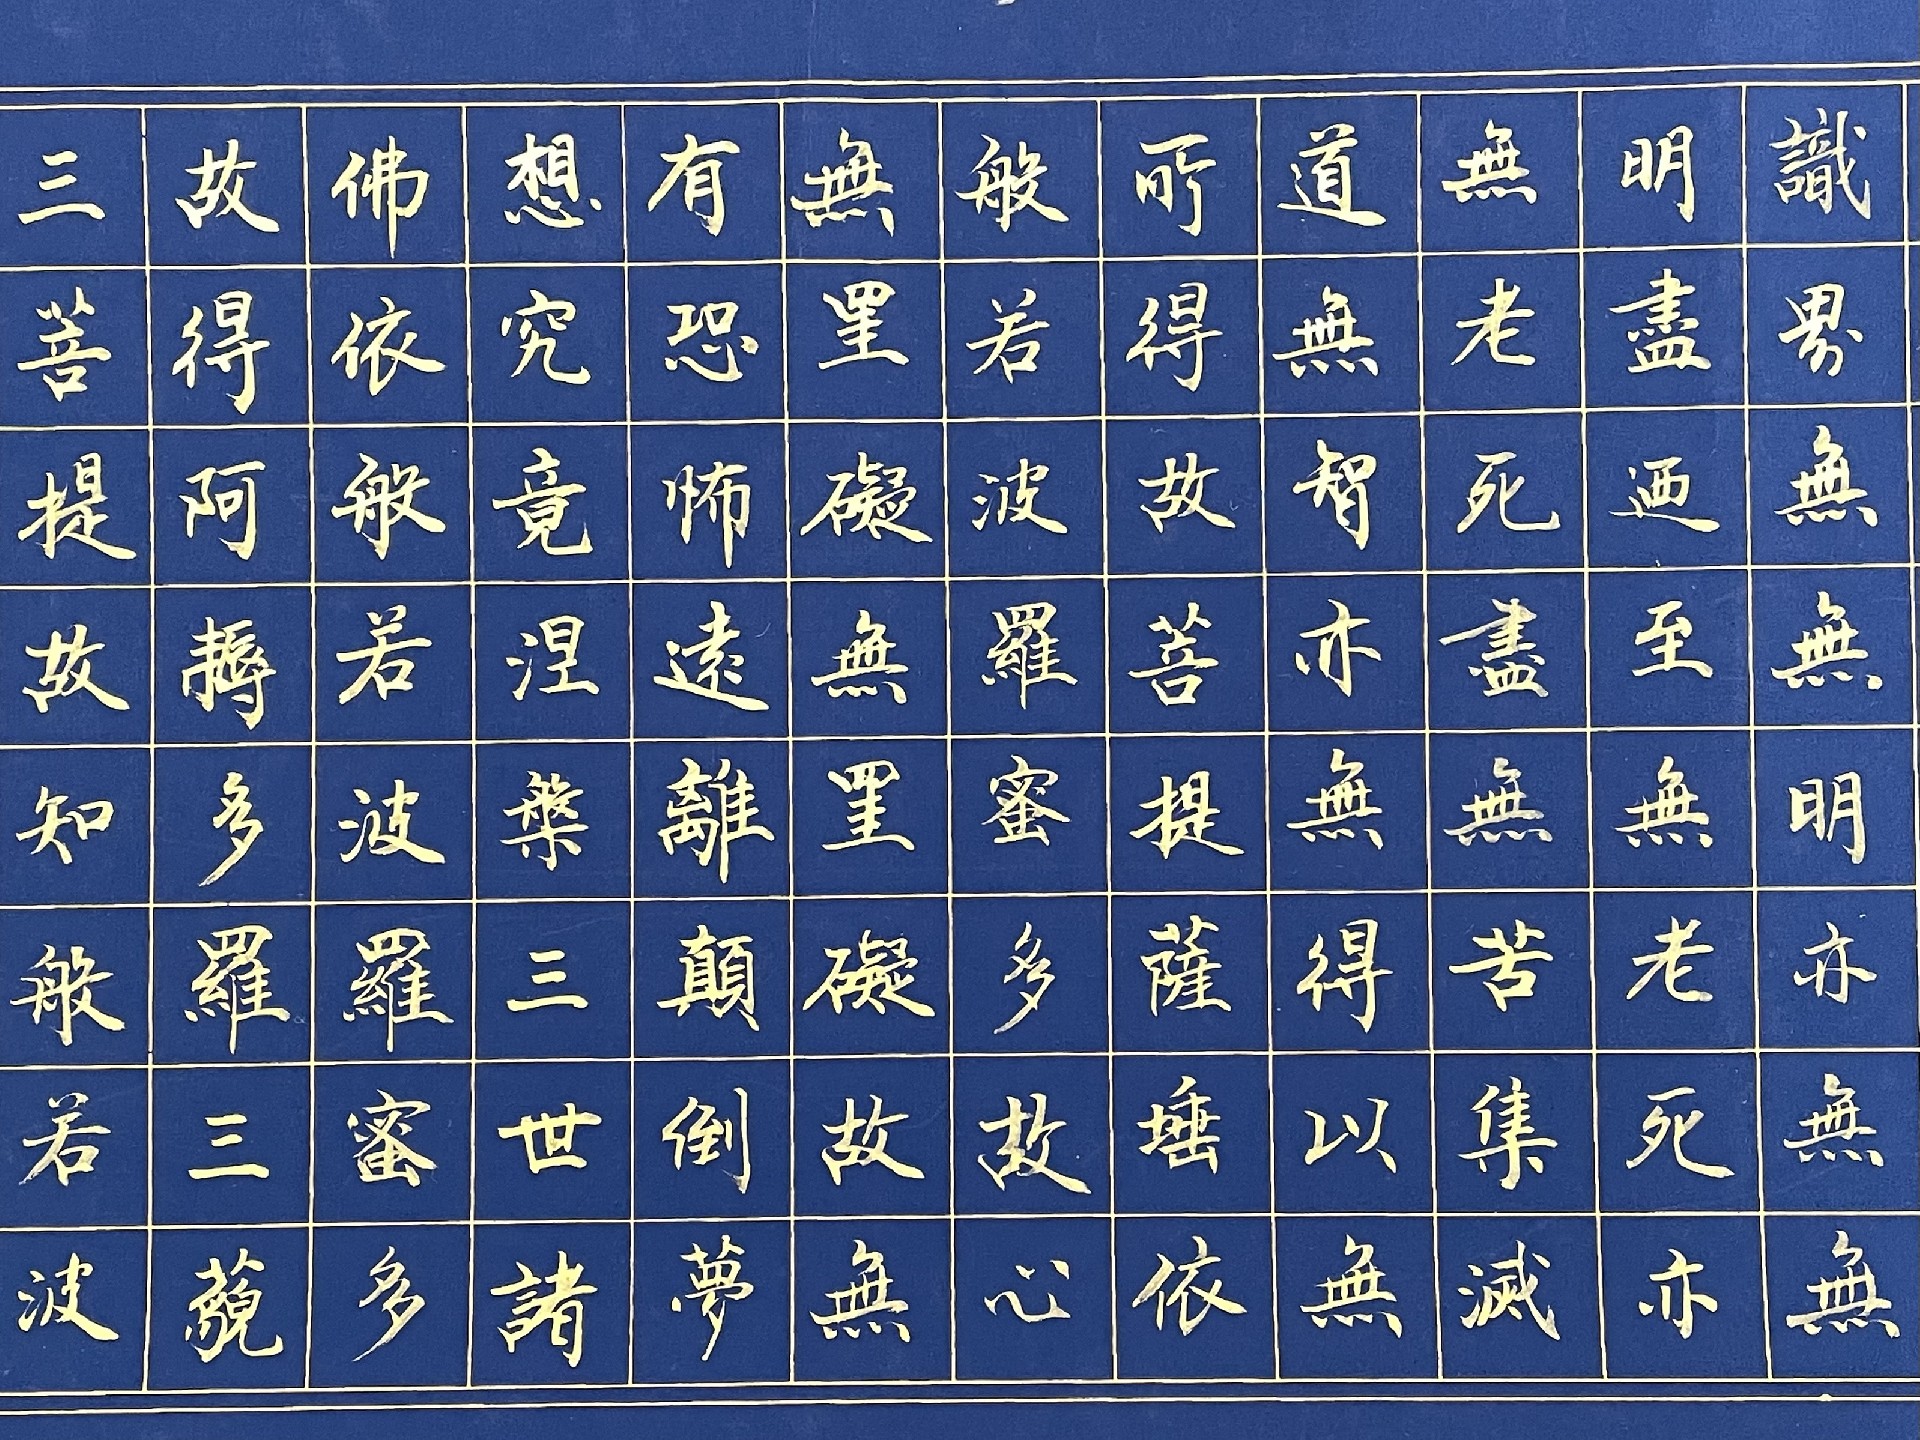 識界無無明亦無無
明盡迺至無老死亦
無老死盡無苦集滅
道無智亦無得以無
所得故菩提薩埵依
般若波羅蜜多故心
無罣礙無罣礙故無
有恐怖遠離顛倒夢
想究竟涅槃三世諸
佛依般若波羅蜜多
故得阿耨多羅三藐
三菩提故知般若波